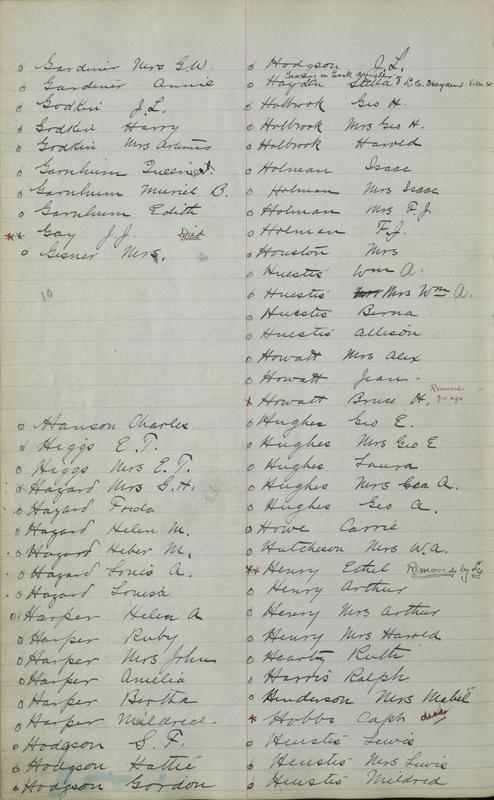 o Gardiner Mrs G.W.
o Gardiner Annie
o Godkin J.L.
o Godkin Harry
o Godkin Mrs Artemas
o Garnhum Queenie
o Garnhum Muriel B.
o Garnhum Edith
** Gay J.J. Died
o Gesner Mrs.
10
o Hanson Charles
o Higgs E.T.
o Higgs Mrs E.T.
o Hazard Mrs G.H.
o Hazard Freda
o Hazard Helen M.
o Hazard Heber M.
o Hazard Louis A.
o Hazard Louisa
o Harper Helen A
o Harper Ruby
o Harper Mrs John
o Harper Amelia
o Harper Bertha
o Harper Mildred.
o Hodgson S.F.
o Hodgson Hattie
o Hodgson Gordon
o Hodgson J.L.
daughter of
o Hayden Stella R.W. Hayden
o Holbrook Geo H.
o Holbrook Mrs Geo H.
o Holbrook Harold
o Holman Isaac
o Holman Mrs Isaac
o Holman Mrs F.J.
o Holman F.J.
o Houston Mrs
o Huestis Wm A.
o Huestis Mrs Wm A.
o Huestis Berna
o Huestis Allison
o Howatt Mrs Alex
o Howatt Jean
* Howatt Bruce H. Remove
yrs ago
o Hughes Geo E.
o Hughes Mrs Geo E
o Hughes Laura
o Hughes Mrs Geo A.
o Hughes Geo A.
o Howe Carrie
o Hutcheson Mrs W.A.
** Henry Ethel Removed by
o Henry Arthur
o Henry Mrs Arthur
o Henry Mrs Harold
o Heartz Ruth
o Harris Ralph
o Henderson Mrs Mabel
* Hobbs Capt dead
o Huestis Lewis
o Huestis Mrs Lewis
o Huestis Mildred